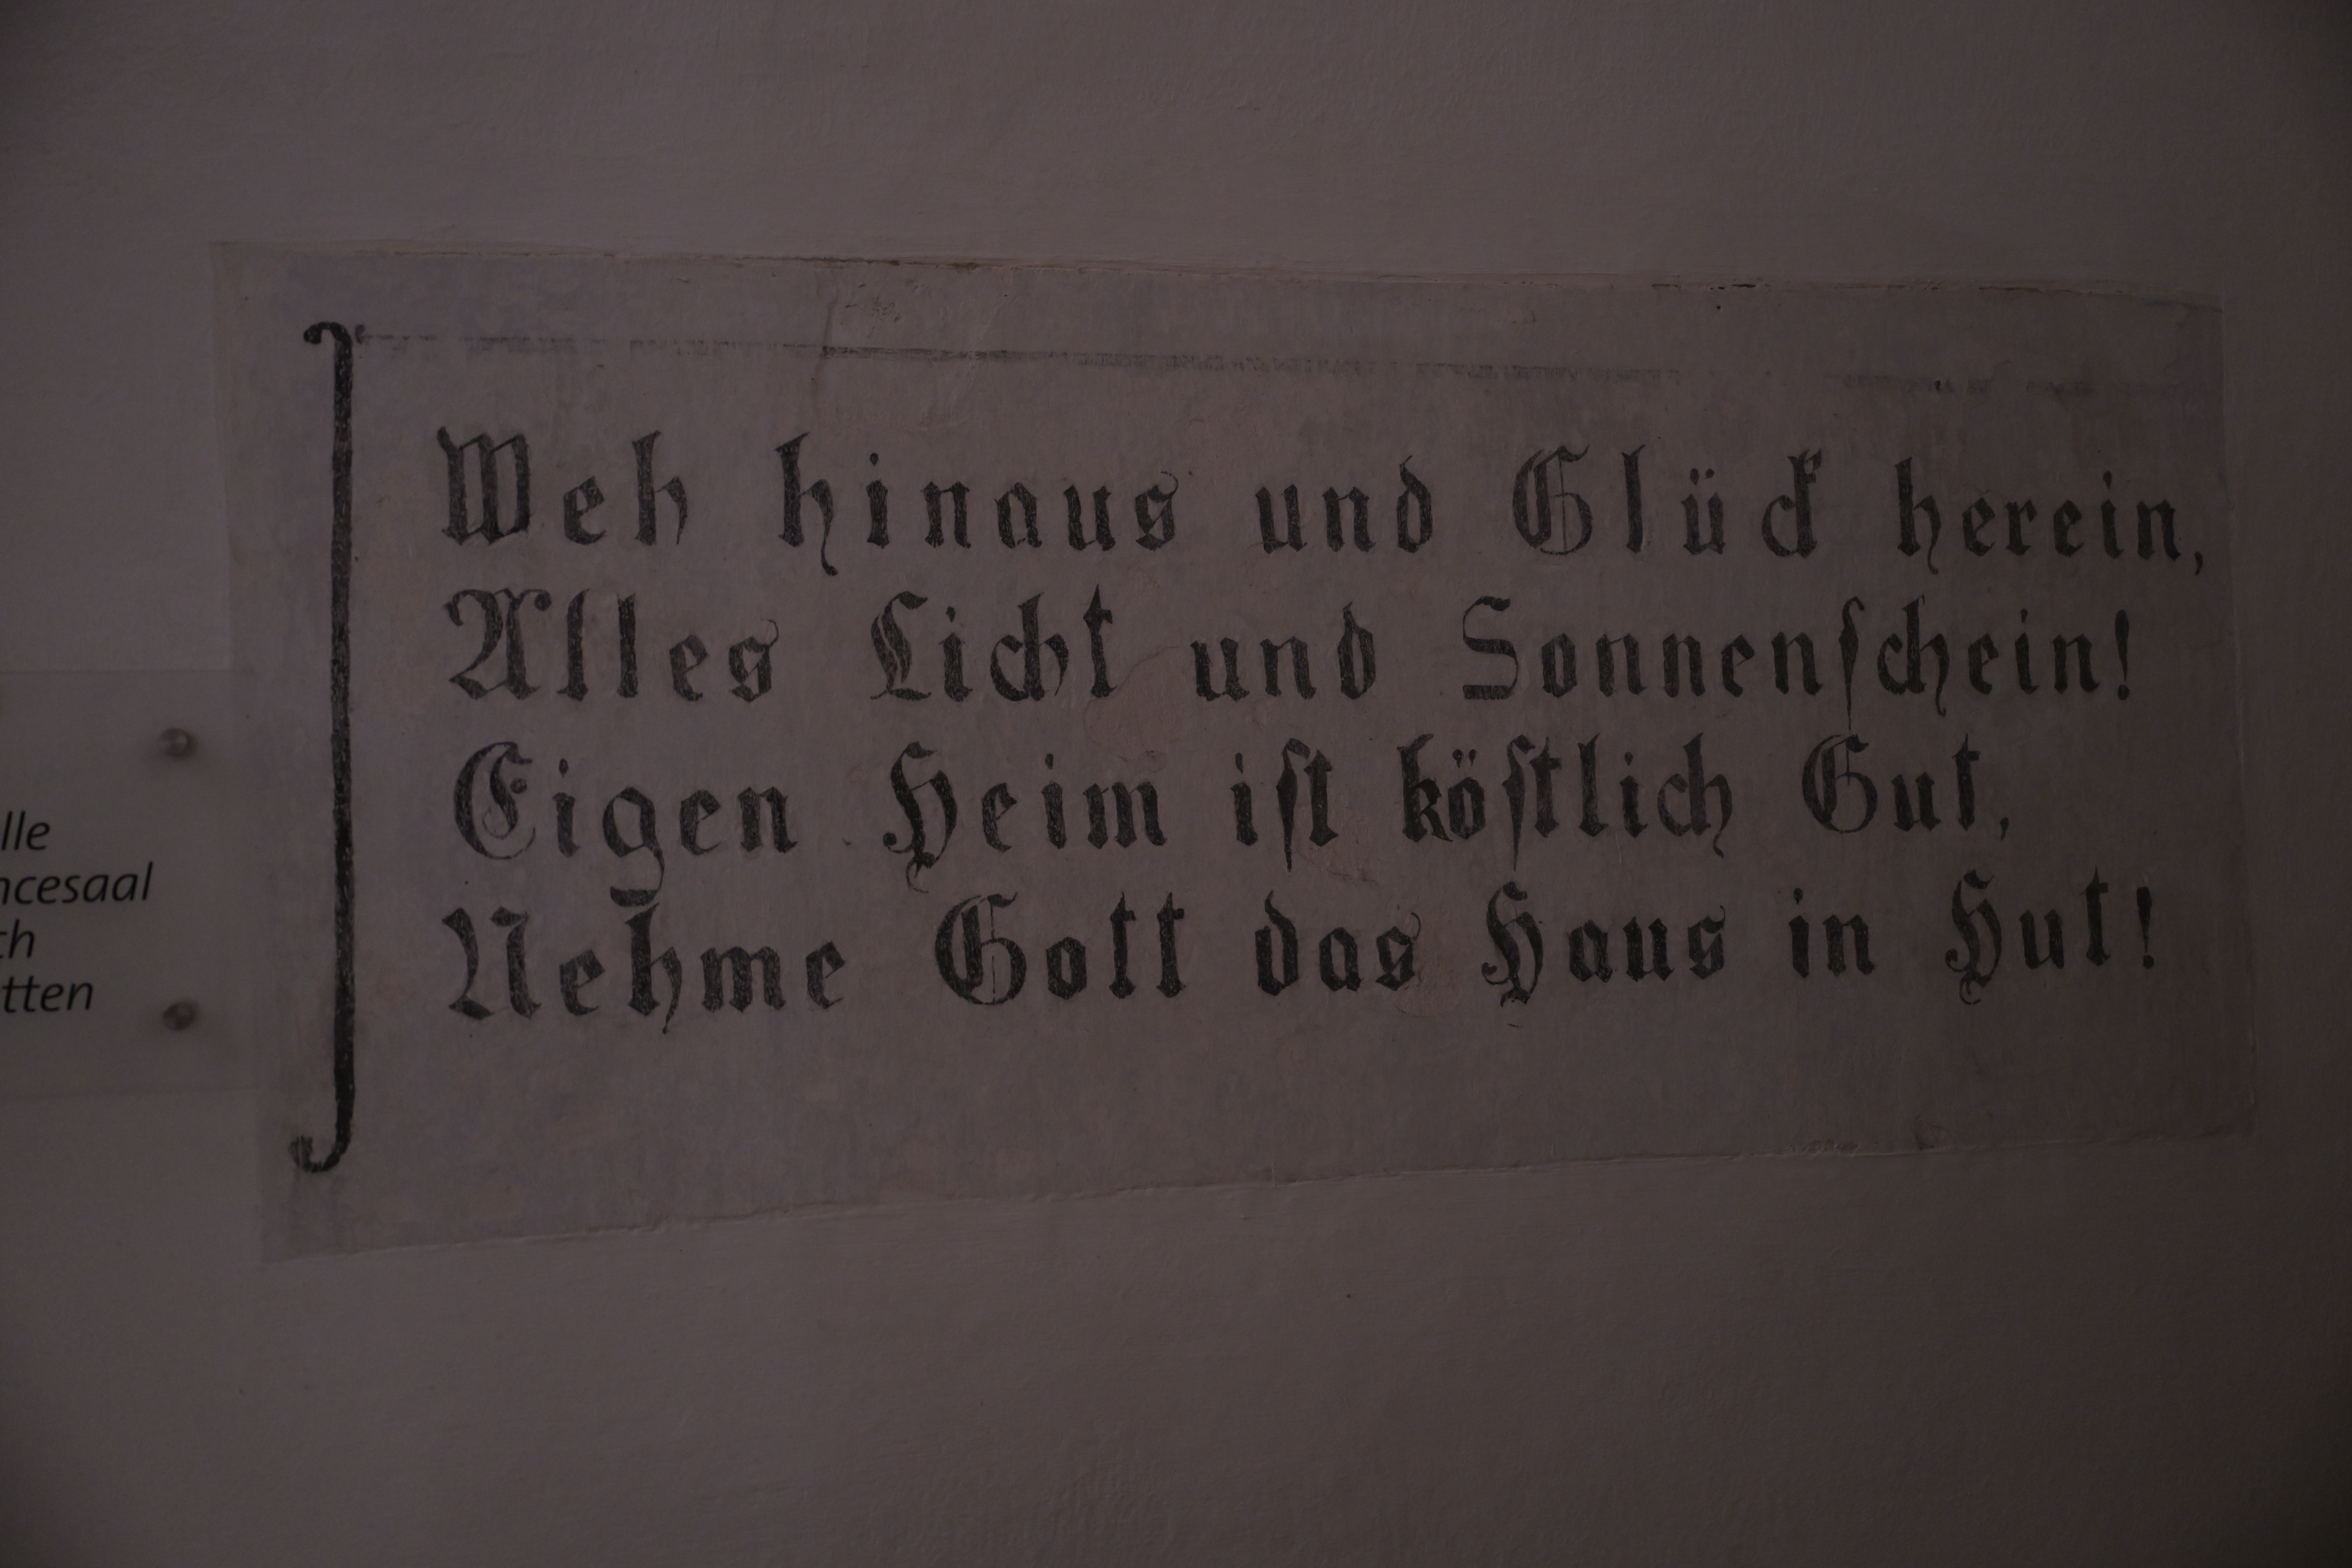 Weh hinaus und Glück herein,
Alles Licht und Sonnenſchein!
Eigen Heim iſt köſtlich Gut,
Nehme Gott das Haus in Hut!
lle
ncesaal
ch
tten